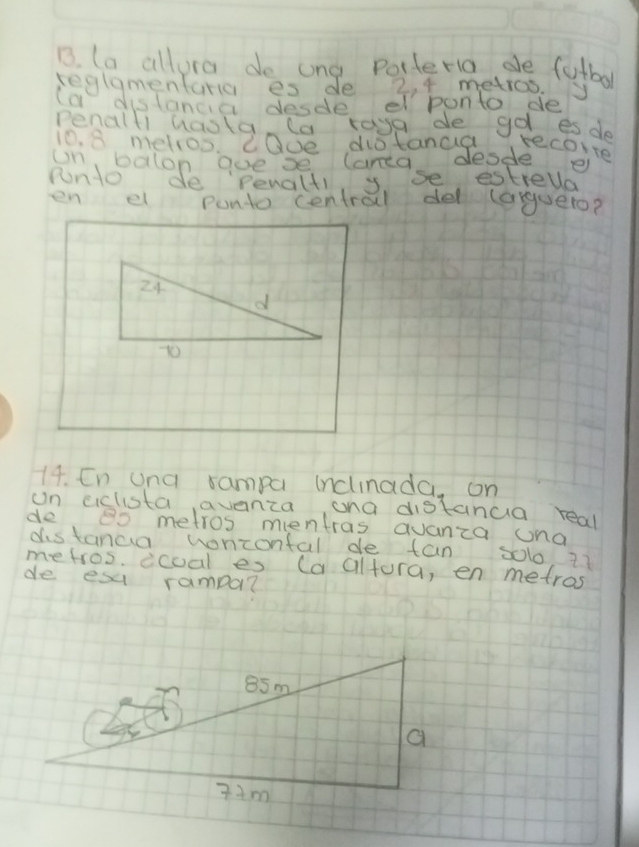 13. La altura de una porteria de futbol
reglamentaria es de 2,4 metros. y
la distancia desde el ponto de
penalti hasta la raya de gol es de
10.8 metros. ¿Que distancia recorre
un balon que se lanza desde el
Punto de penalti y se estrella
en el punto central del larguero?
24
d
14. En una rampa inclinada, on
un ciclista avanza una distancia real
de 85 metros mientras avanza una
distancia horizontal de tan solo 77
metros. ¿cual es la altura, en metros
de esa rampa?
85m
a
77m